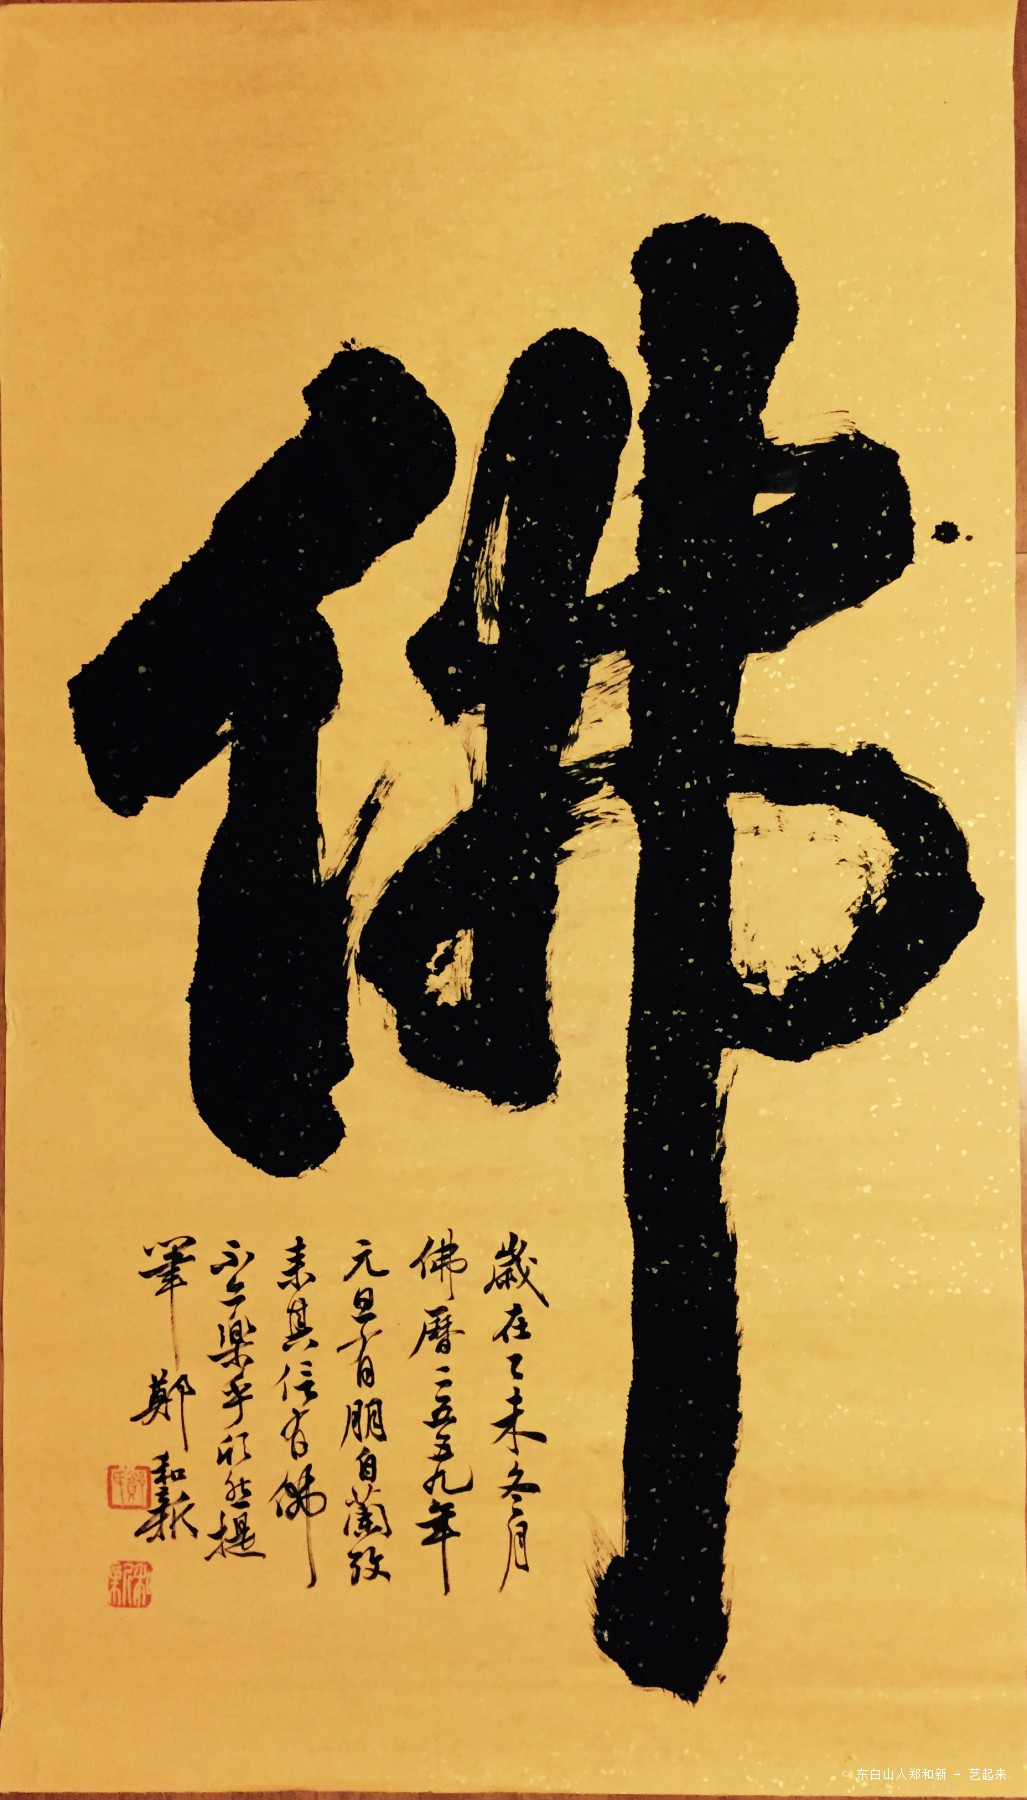 佛
歲在乙未冬月
佛曆二五五九年
元旦有朋自蘭致
来其信有佛
不亦樂乎欣然提
筆 鄭和新
东白山人郑和新 - 艺起来